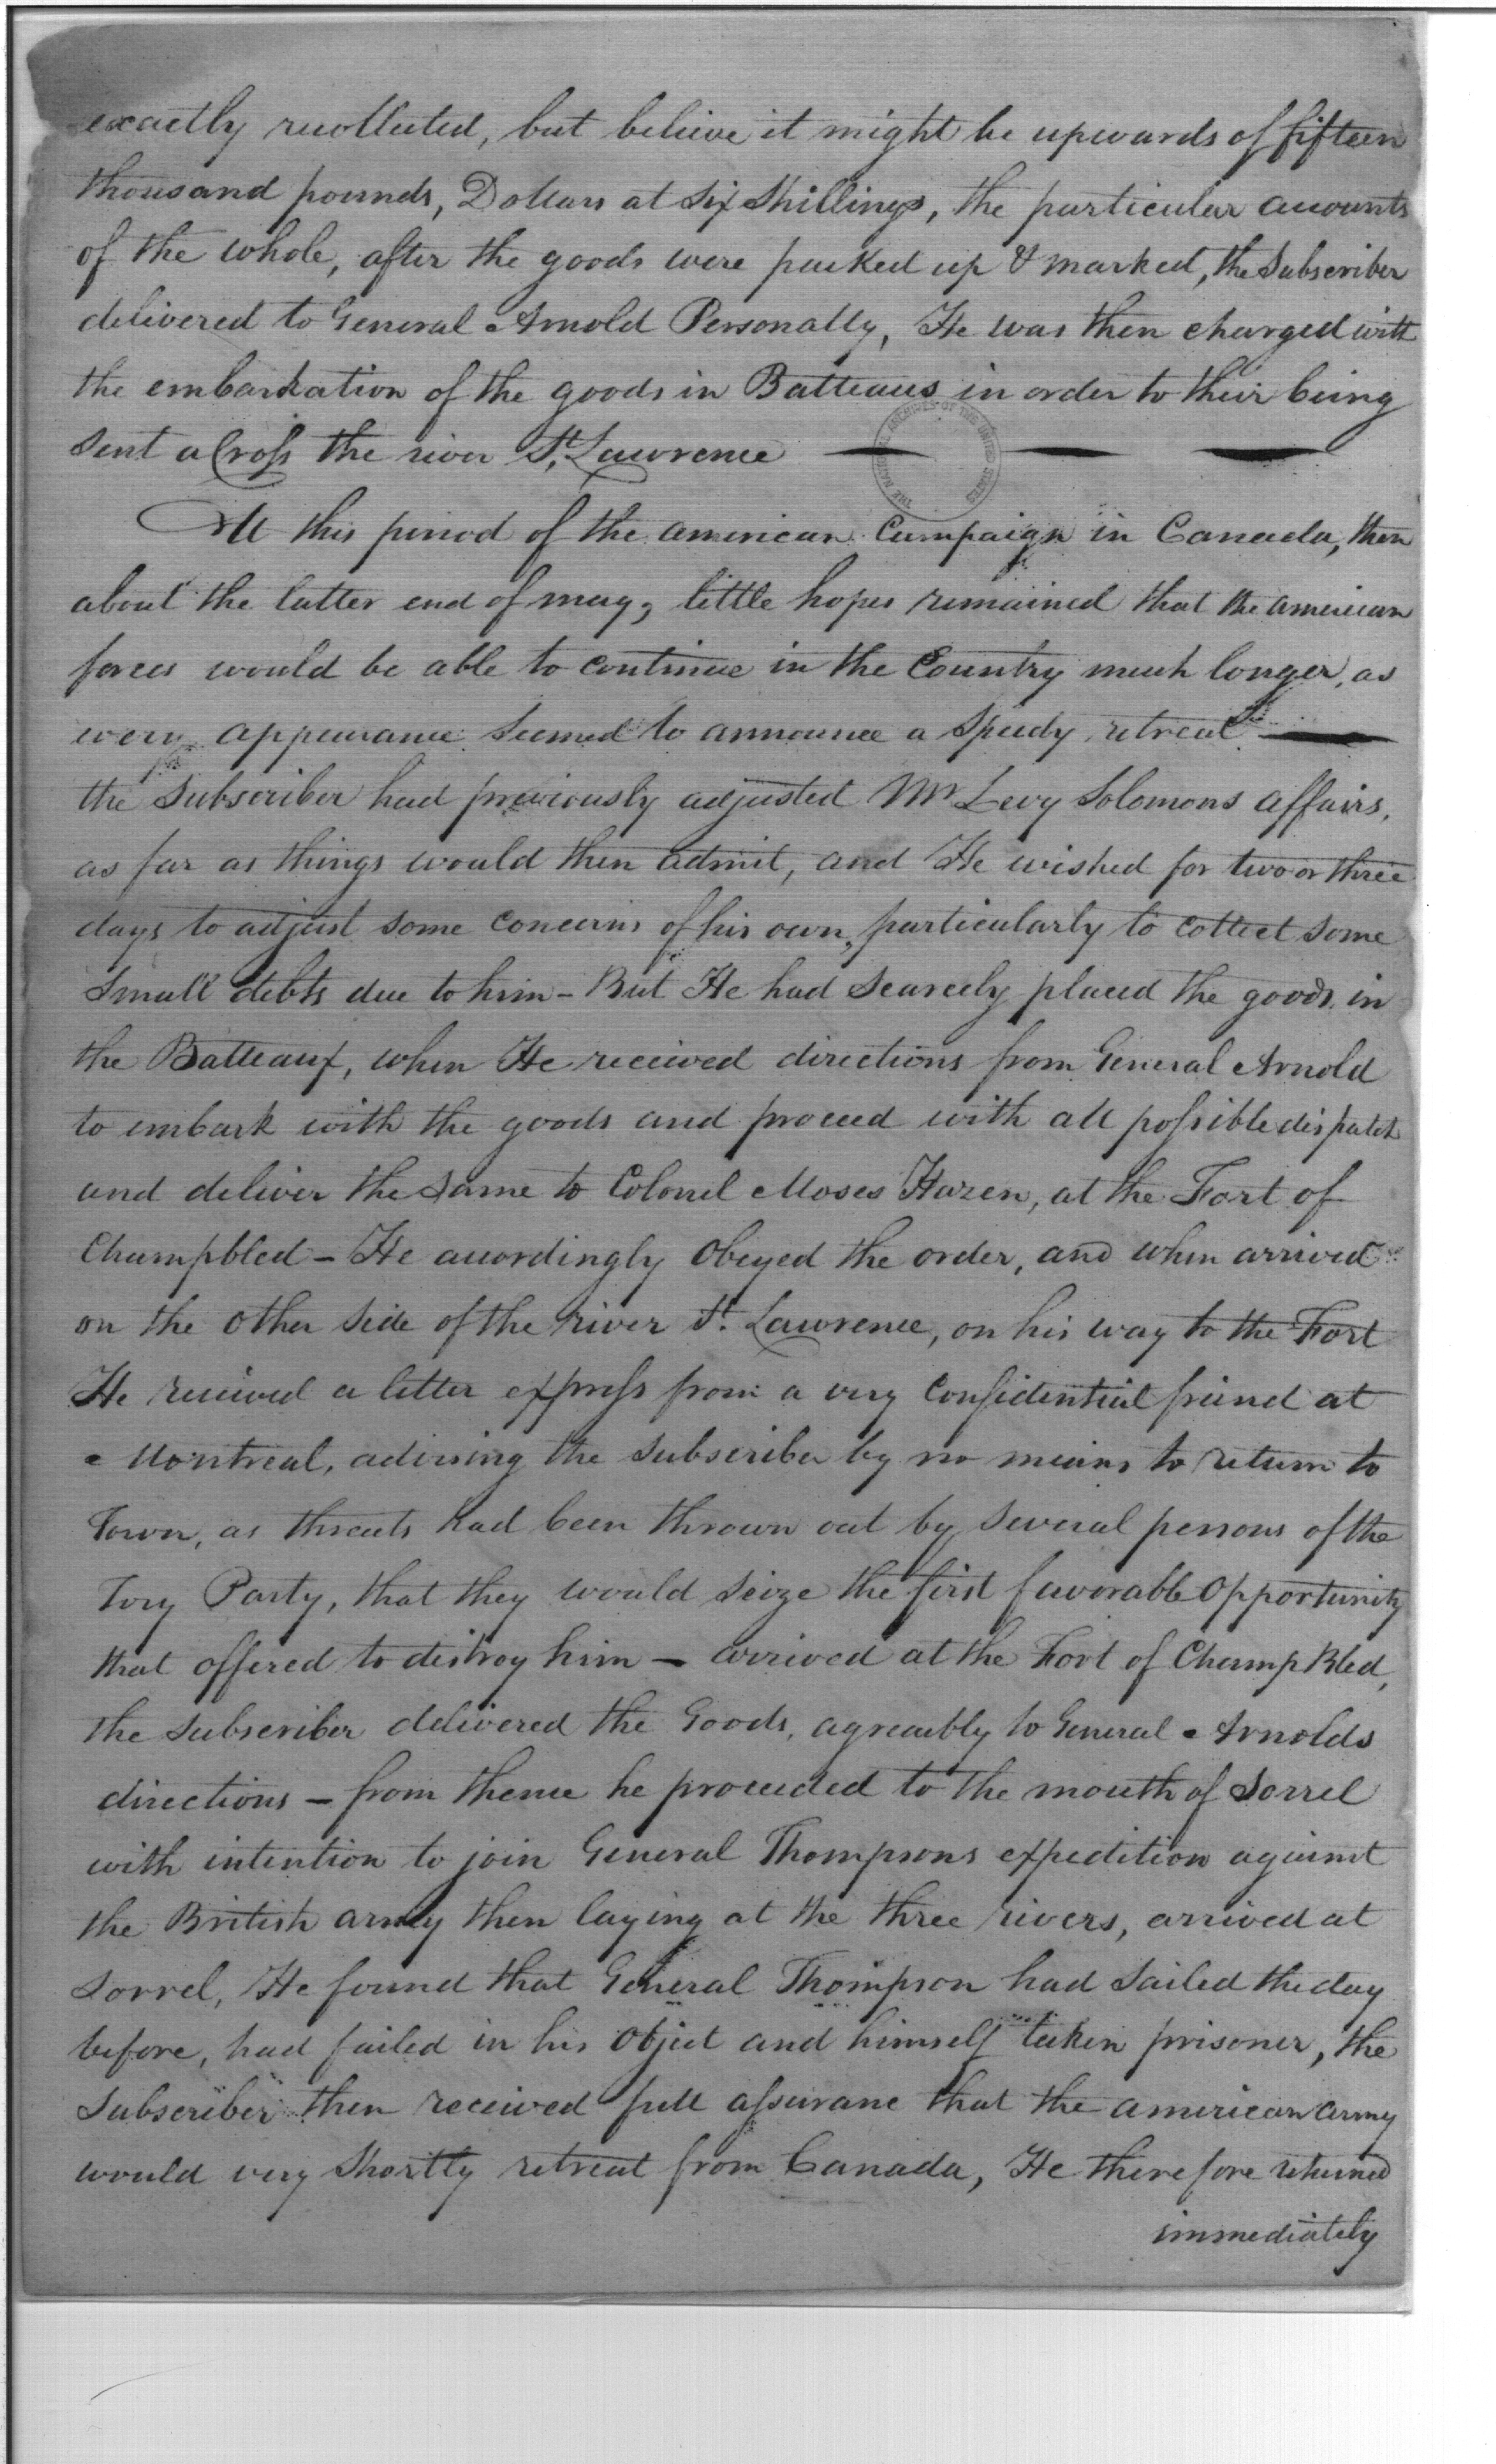 exactly recollected, but believe it might be upwards of fifteen
thousand pounds, Dollars at Six Shillings, the particular accounts
of the whole, after the goods were packed up & marked, the Subscriber
delivered to General Arnold Personally, He was then charged with
the embarkation of the goods in Batteaus in order to their being
Sent a Cross the river St. Lawrence
THE NATIONAL ARCHIVES OF THE UNITED STATES
At this period of the american Campaign in Canada, then
about the latter end of may, little hopes remained that the american
forces would be able to continue in the Country much longer, as
every appearance Seemed to announce a Speedy retreat
the Subscriber had previously adjusted Mr Levy Solomons affairs,
as far as things would then admit, and He wished for two or three
days to adjust some concerns of his own, particularly to collect some
Small debts due to him - But He had Scarcely placed the goods in
the Batteaux, when He received directions from General Arnold
to embark with the goods and proceed with all possible dispatch
and deliver the Same to Colonel Moses Hazen, at the Fort of
Champbled - He accordingly obeyed the order, and when arrived
on the other Side of the river St. Lawrence, on his way to the Fort
He received a letter express from a very Confidential friend at
Montreal, advising the Subscriber by no means to return to
Town, as threats had been thrown out by Several persons of the
Tory Party, that they would Seize the first favorable opportunity
that offered to distroy him - arrived at the Fort of Champ Bled,
the Subscriber delivered the Goods, agreeably to General Arnolds
directions - from thence he proceeded to the mouth of Sorrel
with intention to join General Thompsons expedition against
the British army then laying at the three rivers, arrived at
Sorrel, He found that General Thompson had Sailed the day
before, had failed in his object and himself taken prisoner, the
Subscriber then received full assurane that the american army
would very Shortly retreat from Canada, He therefore returned
immediately